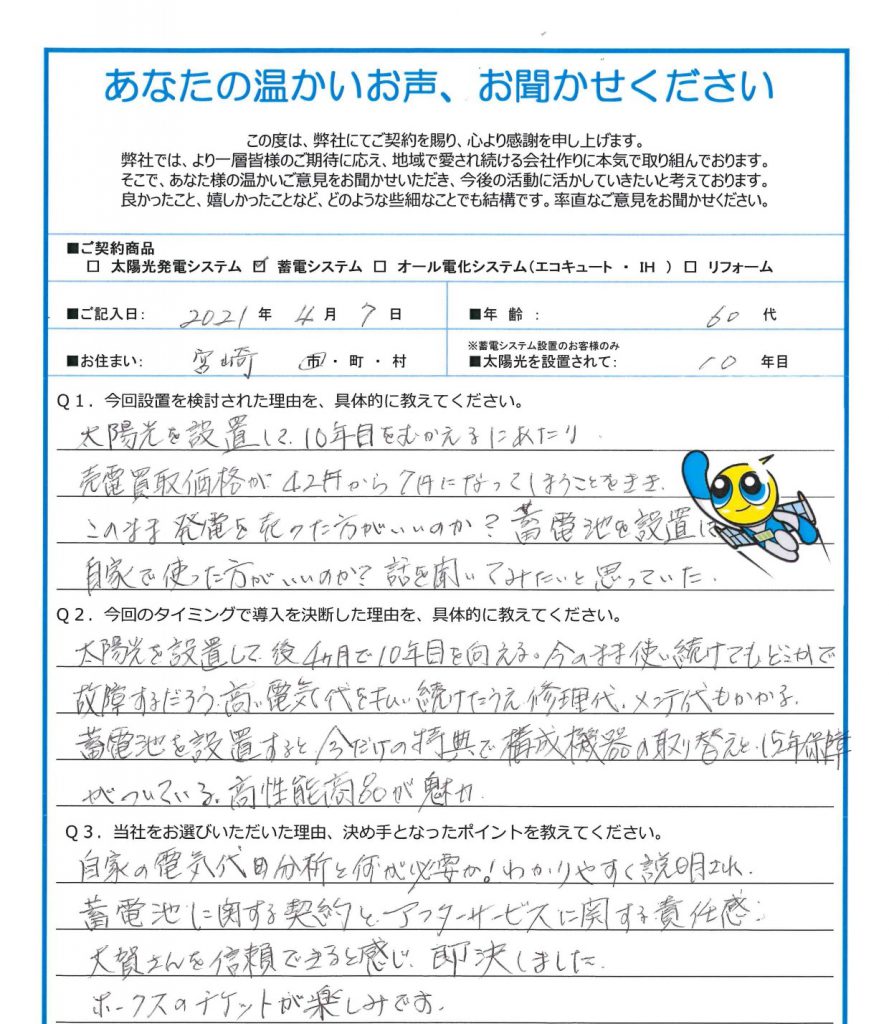 あなたの温かいお声、お聞かせください
この度は、弊社にてご契約を賜り、心より感謝を申し上げます。
弊社では、より一層皆様のご期待に応え、地域で愛され続ける会社作りに本気で取り組んでおります。
そこで、あなた様の温かいご意見をお聞かせいただき、今後の活動に活かしていきたいと考えております。
良かったこと、嬉しかったことなど、どのような些細なことでも結構です。率直なご意見をお聞かせください。
■ご契約商品
□ 太陽光発電システム ☑ 蓄電システム □ オール電化システム(エコキュート ・ IH ) □ リフォーム
■ご記入日: 2021 年 4 月 7 日 ■年 齢 : 60 代
※蓄電システム設置のお客様のみ
■お住まい: 宮崎 市・町・村 ■太陽光を設置されて: 10 年目
Q1.今回設置を検討された理由を、具体的に教えてください。
太陽光を設置して、10年目をむかえるにあたり、
売電買取価格が42円から7円になってしまうことをきき、
このまま発電を売った方がいいのか?蓄電池を設置し
自家で使った方がいいのか?話を聞いてみたいと思っていた。
Q2.今回のタイミングで導入を決断した理由を、具体的に教えてください。
太陽光を設置して、後4ヶ月で10年目を向える。今のまま使い続けてもどこかで
故障するだろう、高い電気代を払い続けたうえ修理代、メンテ代もかかる。
蓄電池を設置すると今だけの特典で構成機器の取り替えと、15年保障
がついている。高性能商品が魅力。
Q3.当社をお選びいただいた理由、決め手となったポイントを教えてください。
自家の電気代の分析と何が必要か!わかりやすく説明され、
蓄電池に関する契約と、アフターサービスに関する責任感
大賀さんを信頼できると感じ、即決しました。
ホークスのチケットが楽しみです。